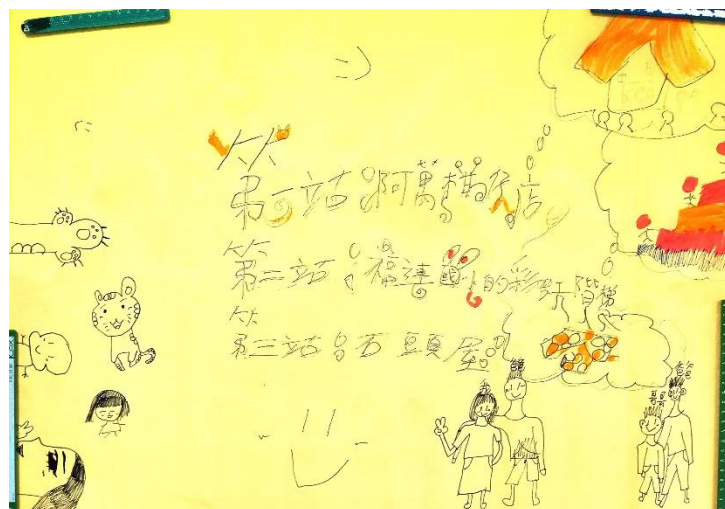 第一站：阿萬柑仔店
第二站：福連國小的彩虹階梯
第三站：石頭屋
我
爸爸
哥哥